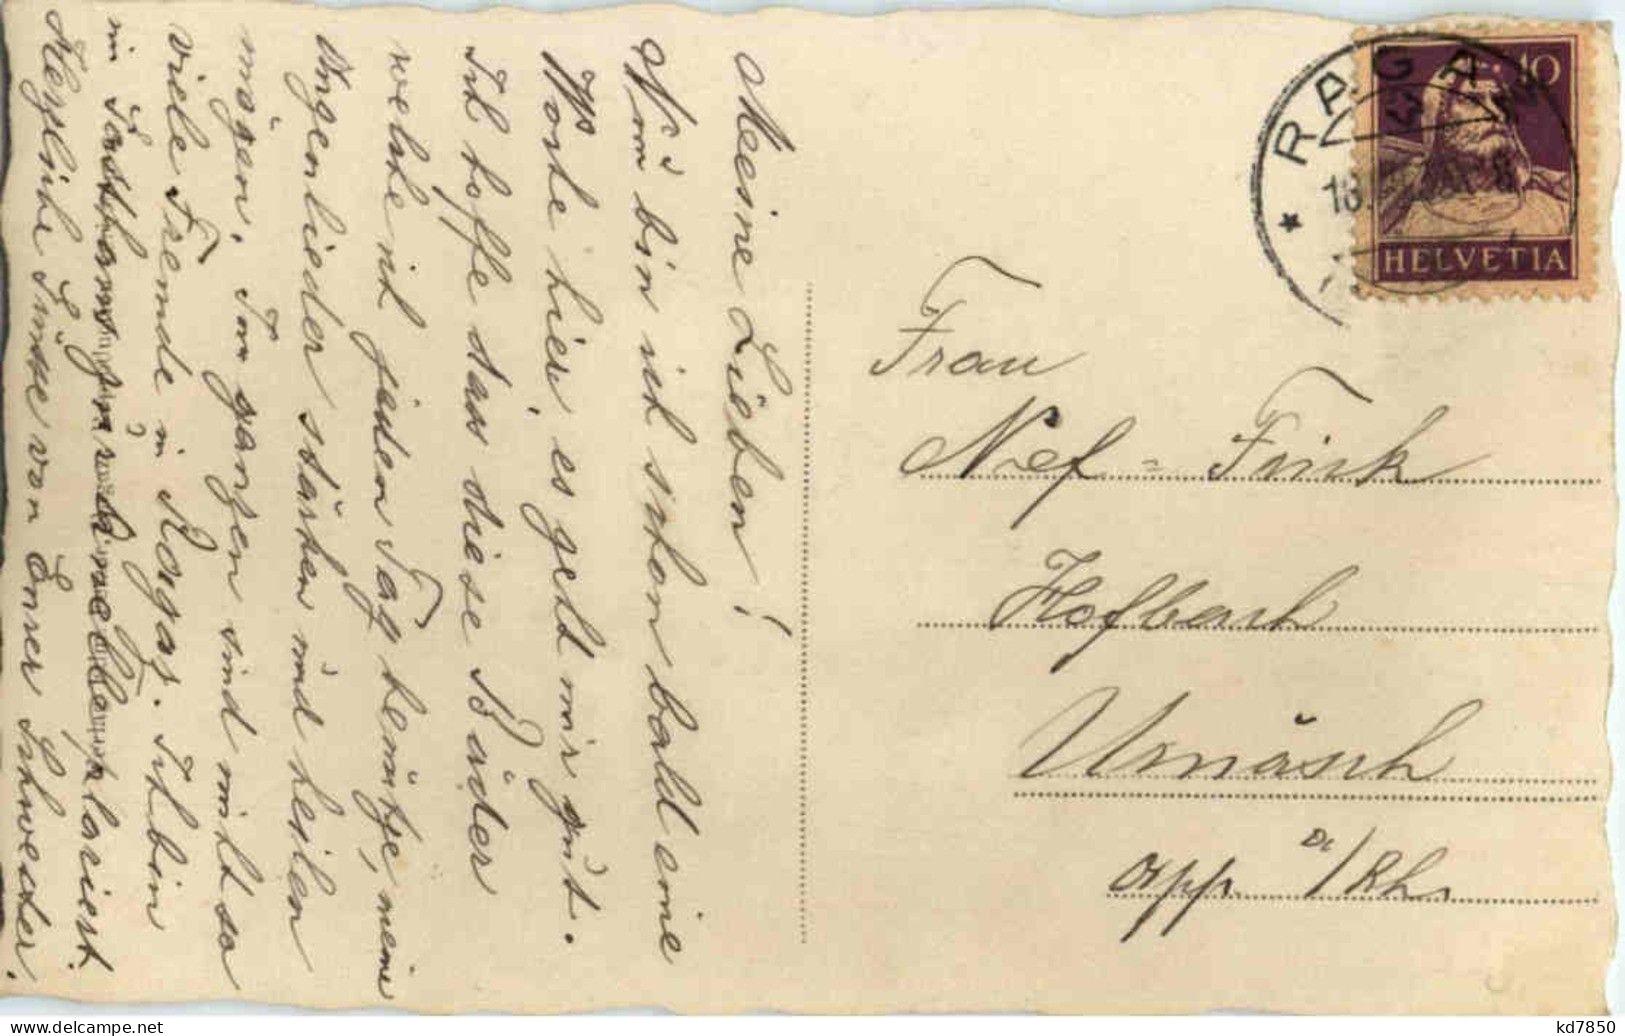 Meine Lieben!
Nun bin ich schon bald eine
Woche hier, es geht mir gut.
Ich hoffe dass diese Bäder
welche ich jeden Tag benütze, meine
stärken und heilen
mögen. Im ganzen sind nicht so
viele Fremde in Ragaz. Ich bin
im
Herzliche Grüsse von Eurer Schwester.
RAGAZ
18.
10
HELVETIA
Frau
Nef = Frick
Hofbach
Urnäsch
App. A/Rh.
kd7850